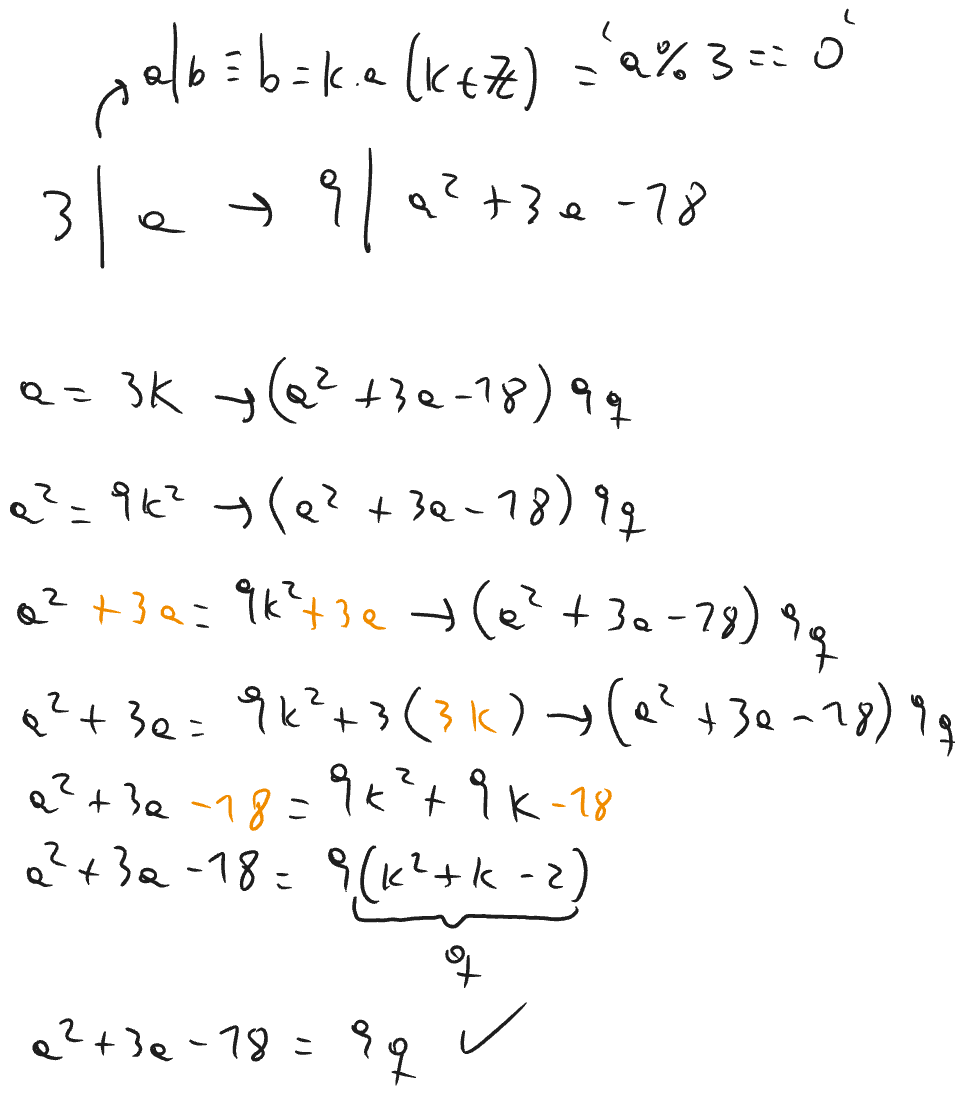 a|b ≡ b = k.a (k ∈ ℤ) = 'a % 3 == 0'
3 | a → 9 | a² + 3a - 18
a = 3k → (a² + 3a - 18) 9q
a² = 9k² → (a² + 3a - 18) 9q
a² + 3a = 9k² + 3a → (a² + 3a - 18) 9q
a² + 3a = 9k² + 3(3k) → (a² + 3a - 18) 9q
a² + 3a - 18 = 9k² + 9k - 18
a² + 3a - 18 = 9(k² + k - 2)
q
a² + 3a - 18 = 9q ✓